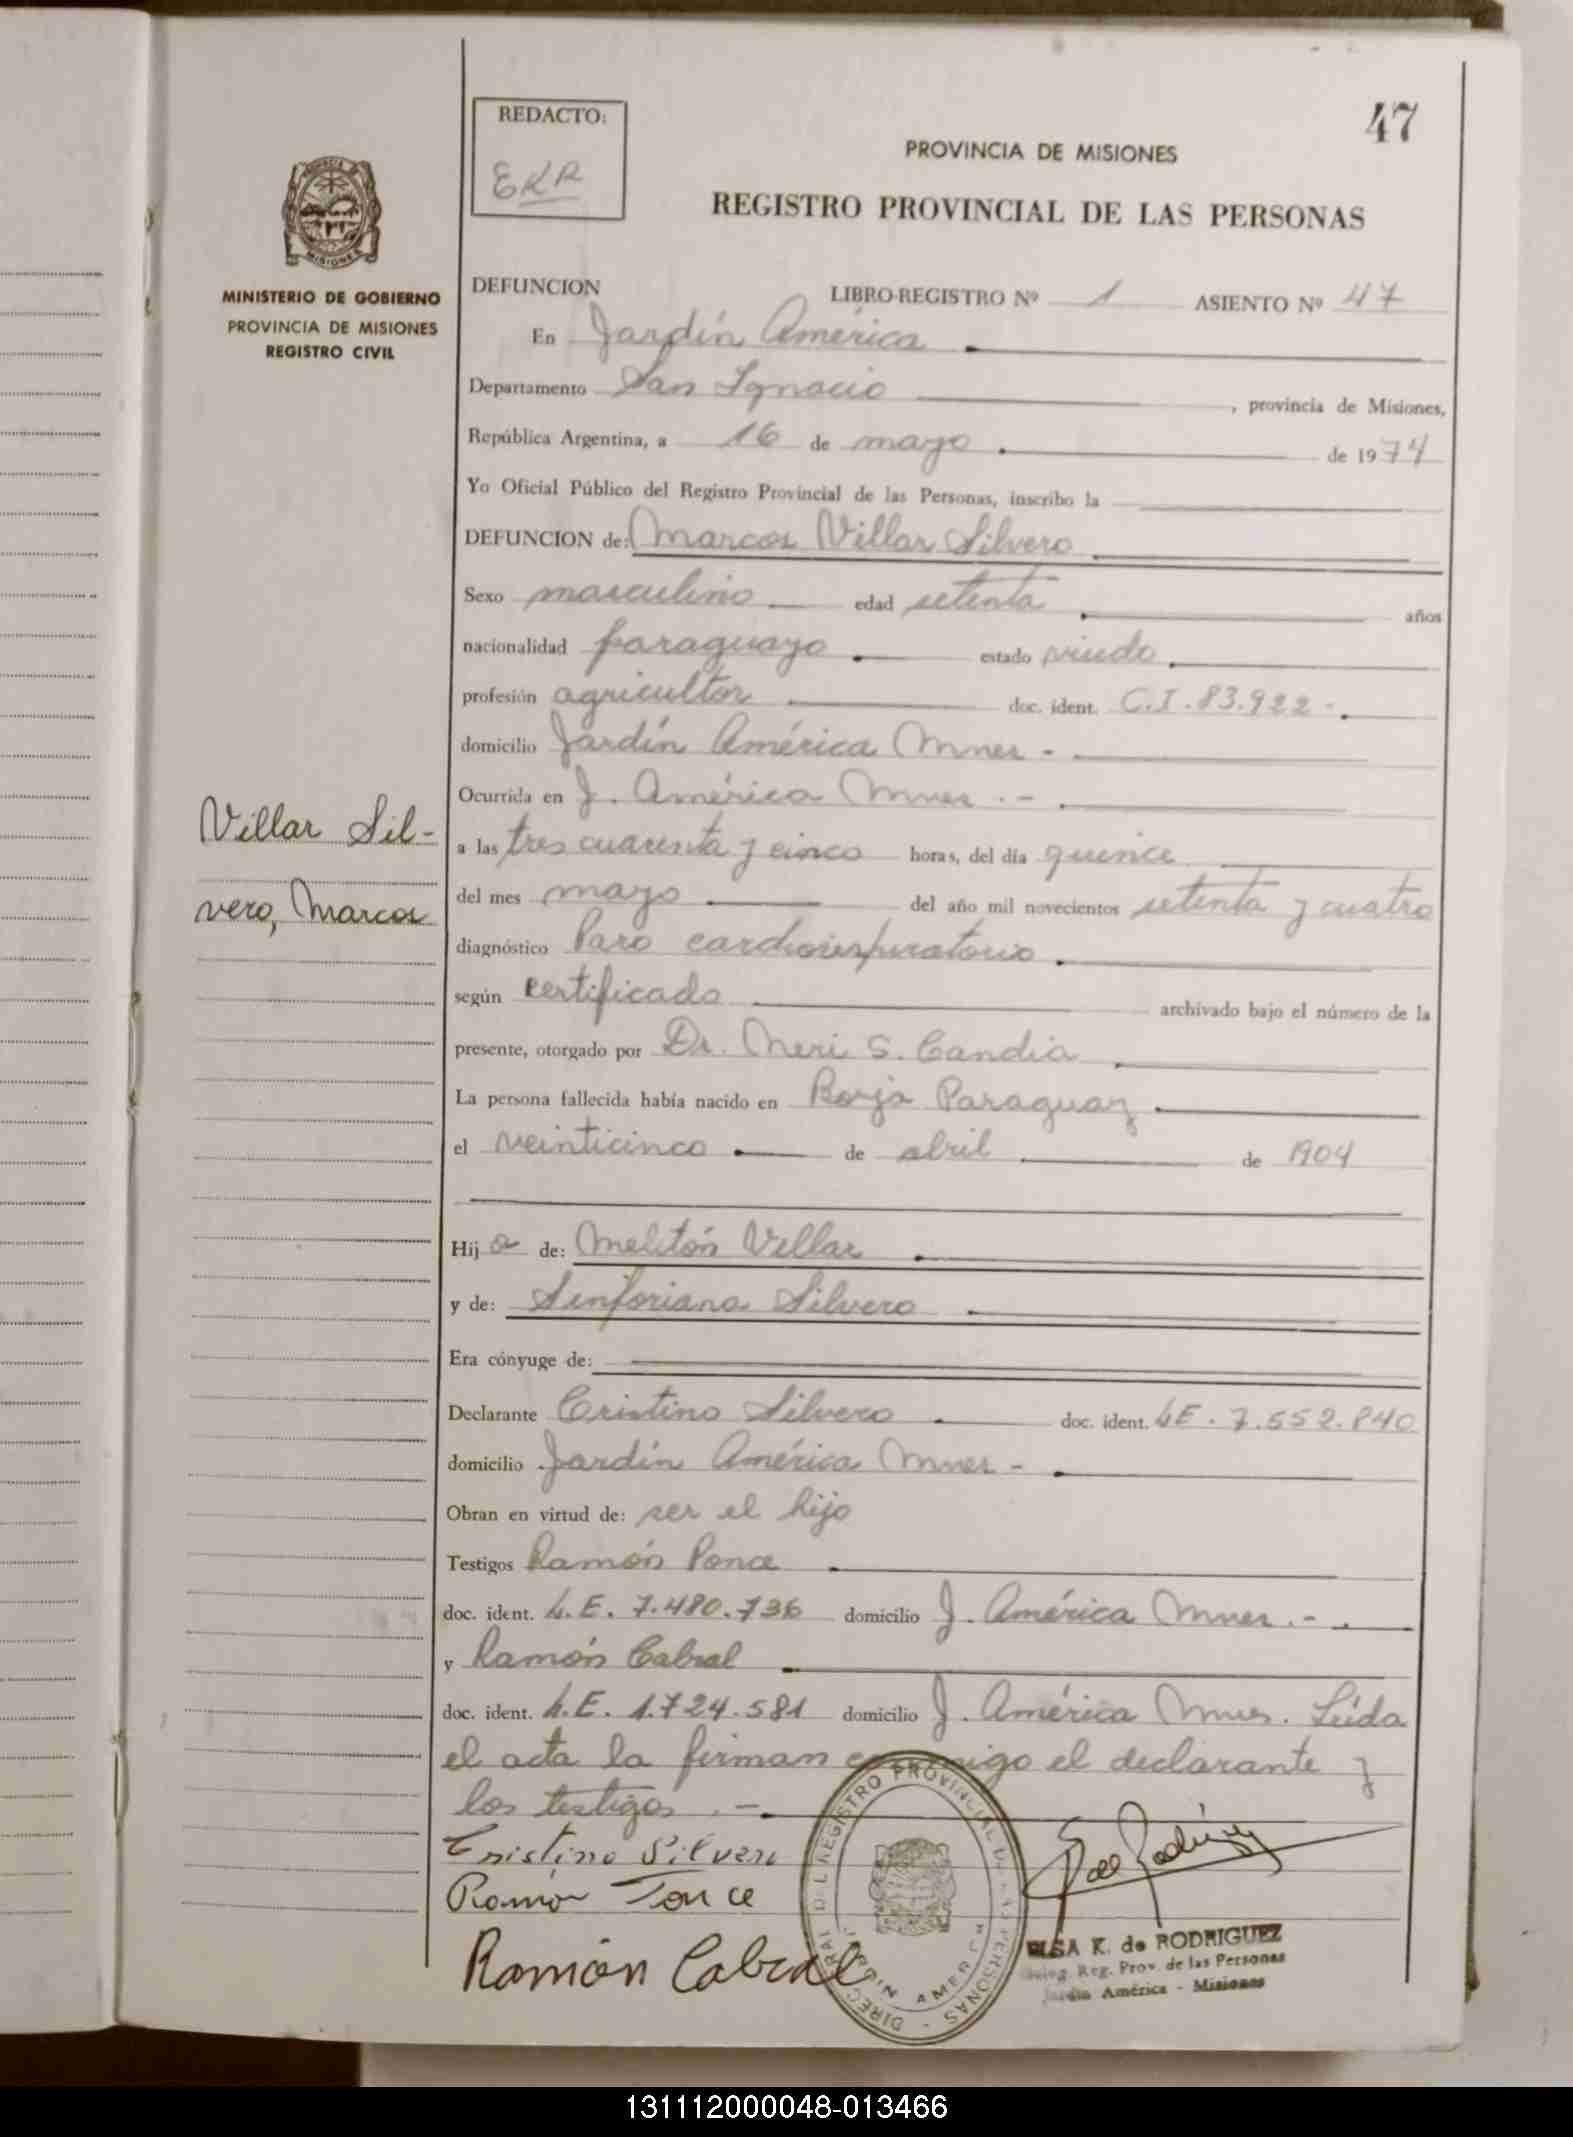 47
REDACTO:
EKR
PROVINCIA DE MISIONES
REGISTRO PROVINCIAL DE LAS PERSONAS
MINISTERIO DE GOBIERNO
PROVINCIA DE MISIONES
REGISTRO CIVIL
DEFUNCION LIBRO-REGISTRO Nº 1 ASIENTO Nº 47
En Jardín América
Departamento San Ignacio, provincia de Misiones,
República Argentina, a 16 de mayo de 1974
Yo Oficial Público del Registro Provincial de las Personas, inscribo la
DEFUNCION de: Marcos Villar Silvero
Sexo masculino edad setenta años
nacionalidad paraguayo estado viudo
profesión agricultor doc. ident. C.I. 83.922-.
domicilio Jardín América Mnes -
Ocurrida en J. América Mnes. -
Villar Sil-
vero, Marcos
a las tres cuarenta y cinco horas, del día quince
del mes mayo del año mil novecientos setenta y cuatro
diagnóstico Paro cardiorespiratorio
según certificado archivado bajo el número de la
presente, otorgado por Dr. Neri S. Candia
La persona fallecida había nacido en Borja Paraguay
el veinticinco de abril de 1904
Hijo de: Melitón Villar
y de: Sinforiana Silvero
Era cónyuge de:
Declarante Cristino Silvero doc. ident. LE. 7.552.840
domicilio Jardín América Mnes -
Obran en virtud de: ser el hijo
Testigos Ramón Ponce
doc. ident. L.E. 7.480.736 domicilio J. América Mnes. -
y Ramón Cabral
doc. ident. L.E. 1.724.581 domicilio J. América Mnes. Leída
el acta la firman conmigo el declarante y
los testigos. -
Cristino Silvero
Ramón Ponce
Ramón Cabral
DIREC. GRAL. DEL REGISTRO PROVINCIAL DE LAS PERSONAS -
JARDIN AMERICA
ELSA K. de RODRIGUEZ
Reg. Prov. de las Personas
Jardín América - Misiones
131112000048-013466